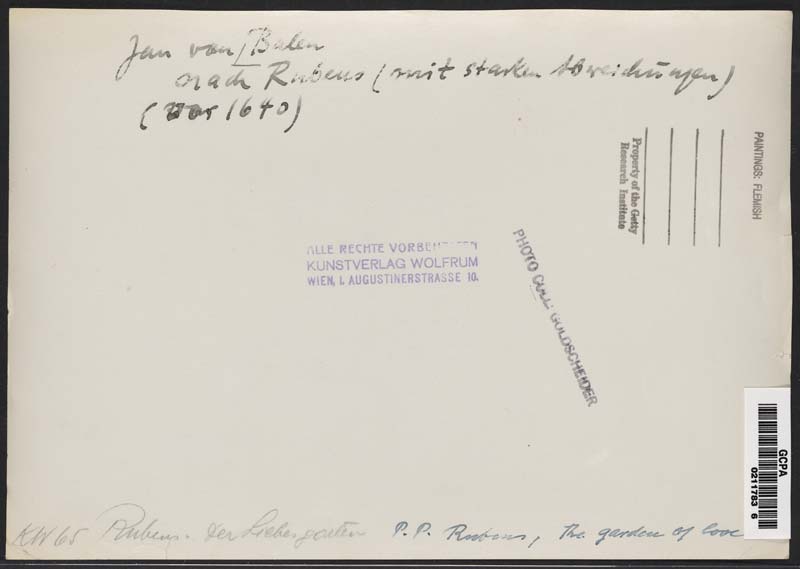 Jan van I Balen
nach Rubens (mit starken Abweichungen)
(vor 1640)
PAINTINGS: FLEMISH
Property of the Getty
Research Institute
ALLE RECHTE VORBEHALTEN
KUNSTVERLAG WOLFRUM
WIEN, I. AUGUSTINERSTRASSE 10.
PHOTO COLL. GOLDSCHEIDER
GCPA
0211783 6
KW 65 Rubens. Der Liebesgarten P. P. Rubens, The garden of love